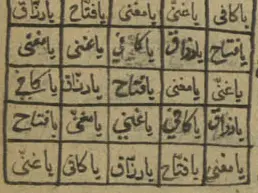 ياكافي ياغني يامغني يافتاح يارزاق
يامغني ياغني ياكافي يارزاق يافتاح
ياكافي يارزاق يافتاح يامغني ياغني
يافتاح يامغني ياغني ياكافي يارزاق
ياغني ياكافي يارزاق يافتاح يامغني